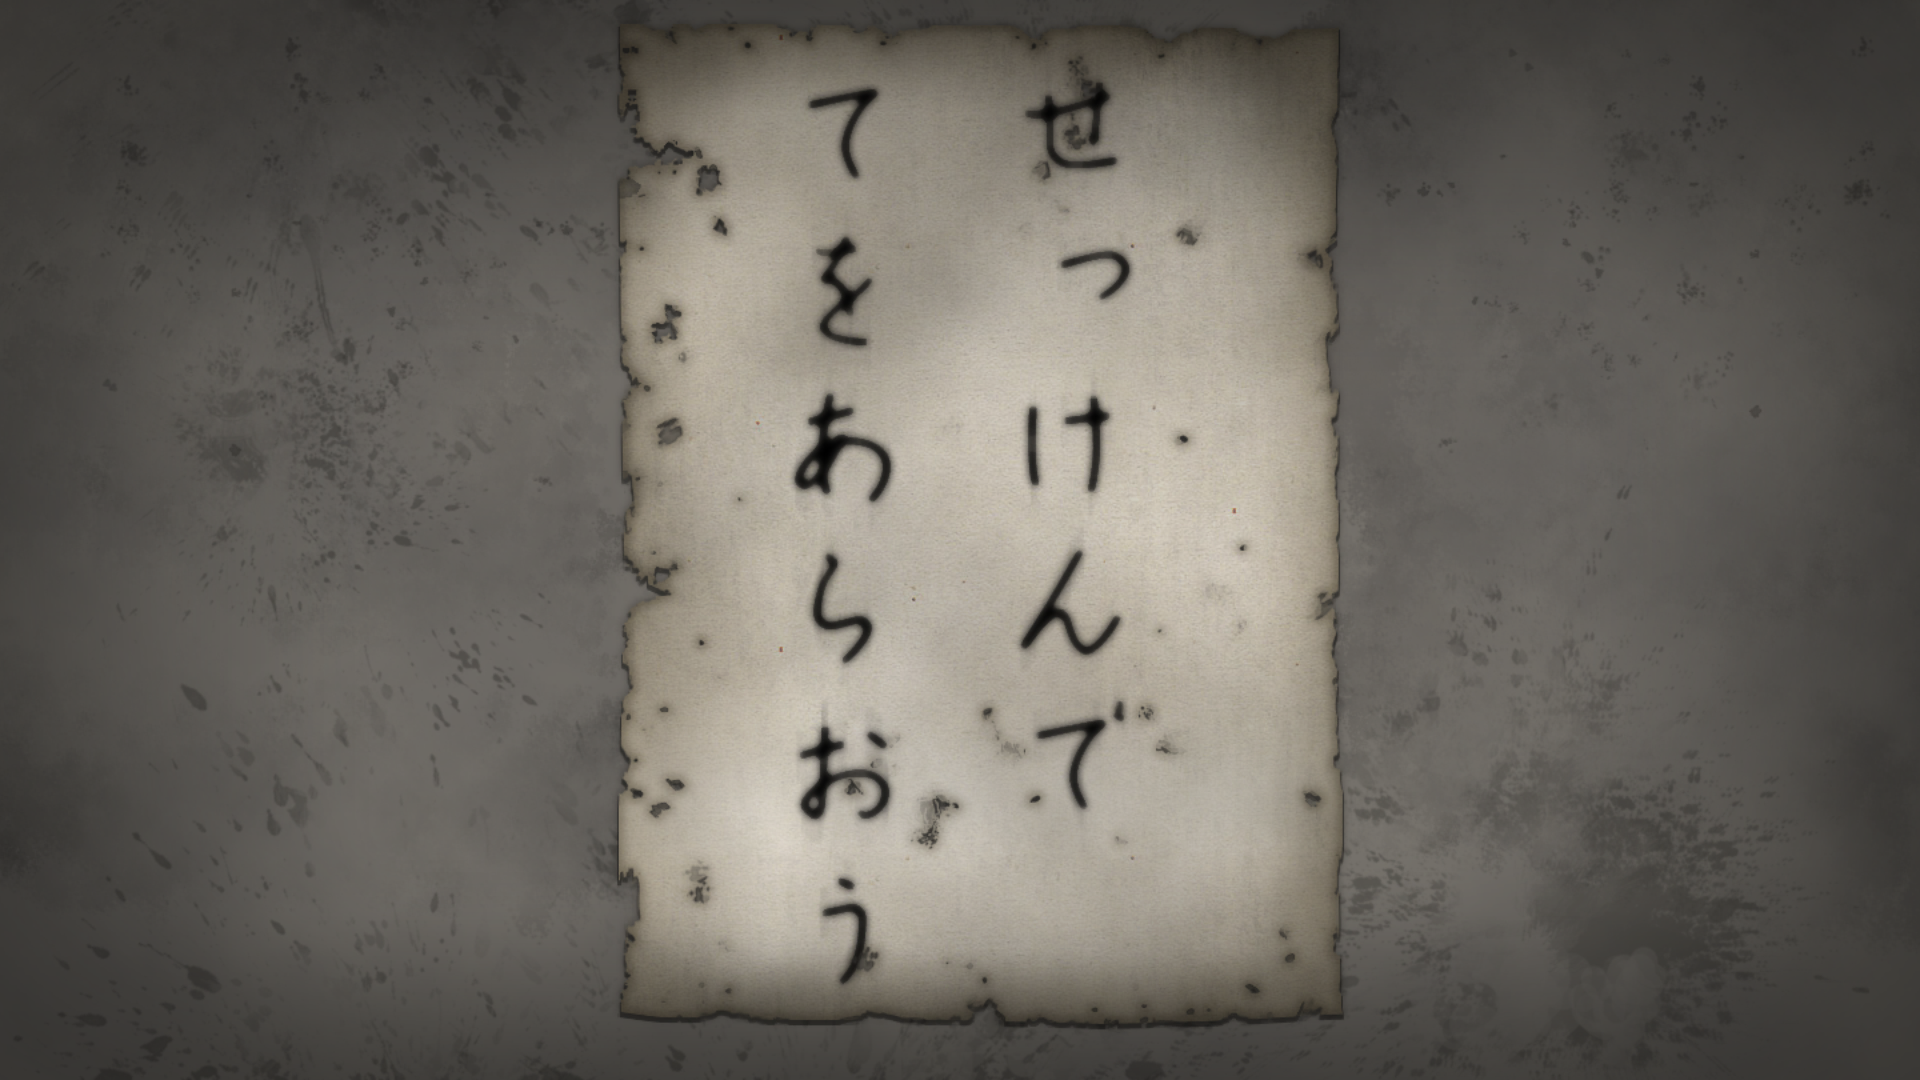 せっけんで
てをあらおう